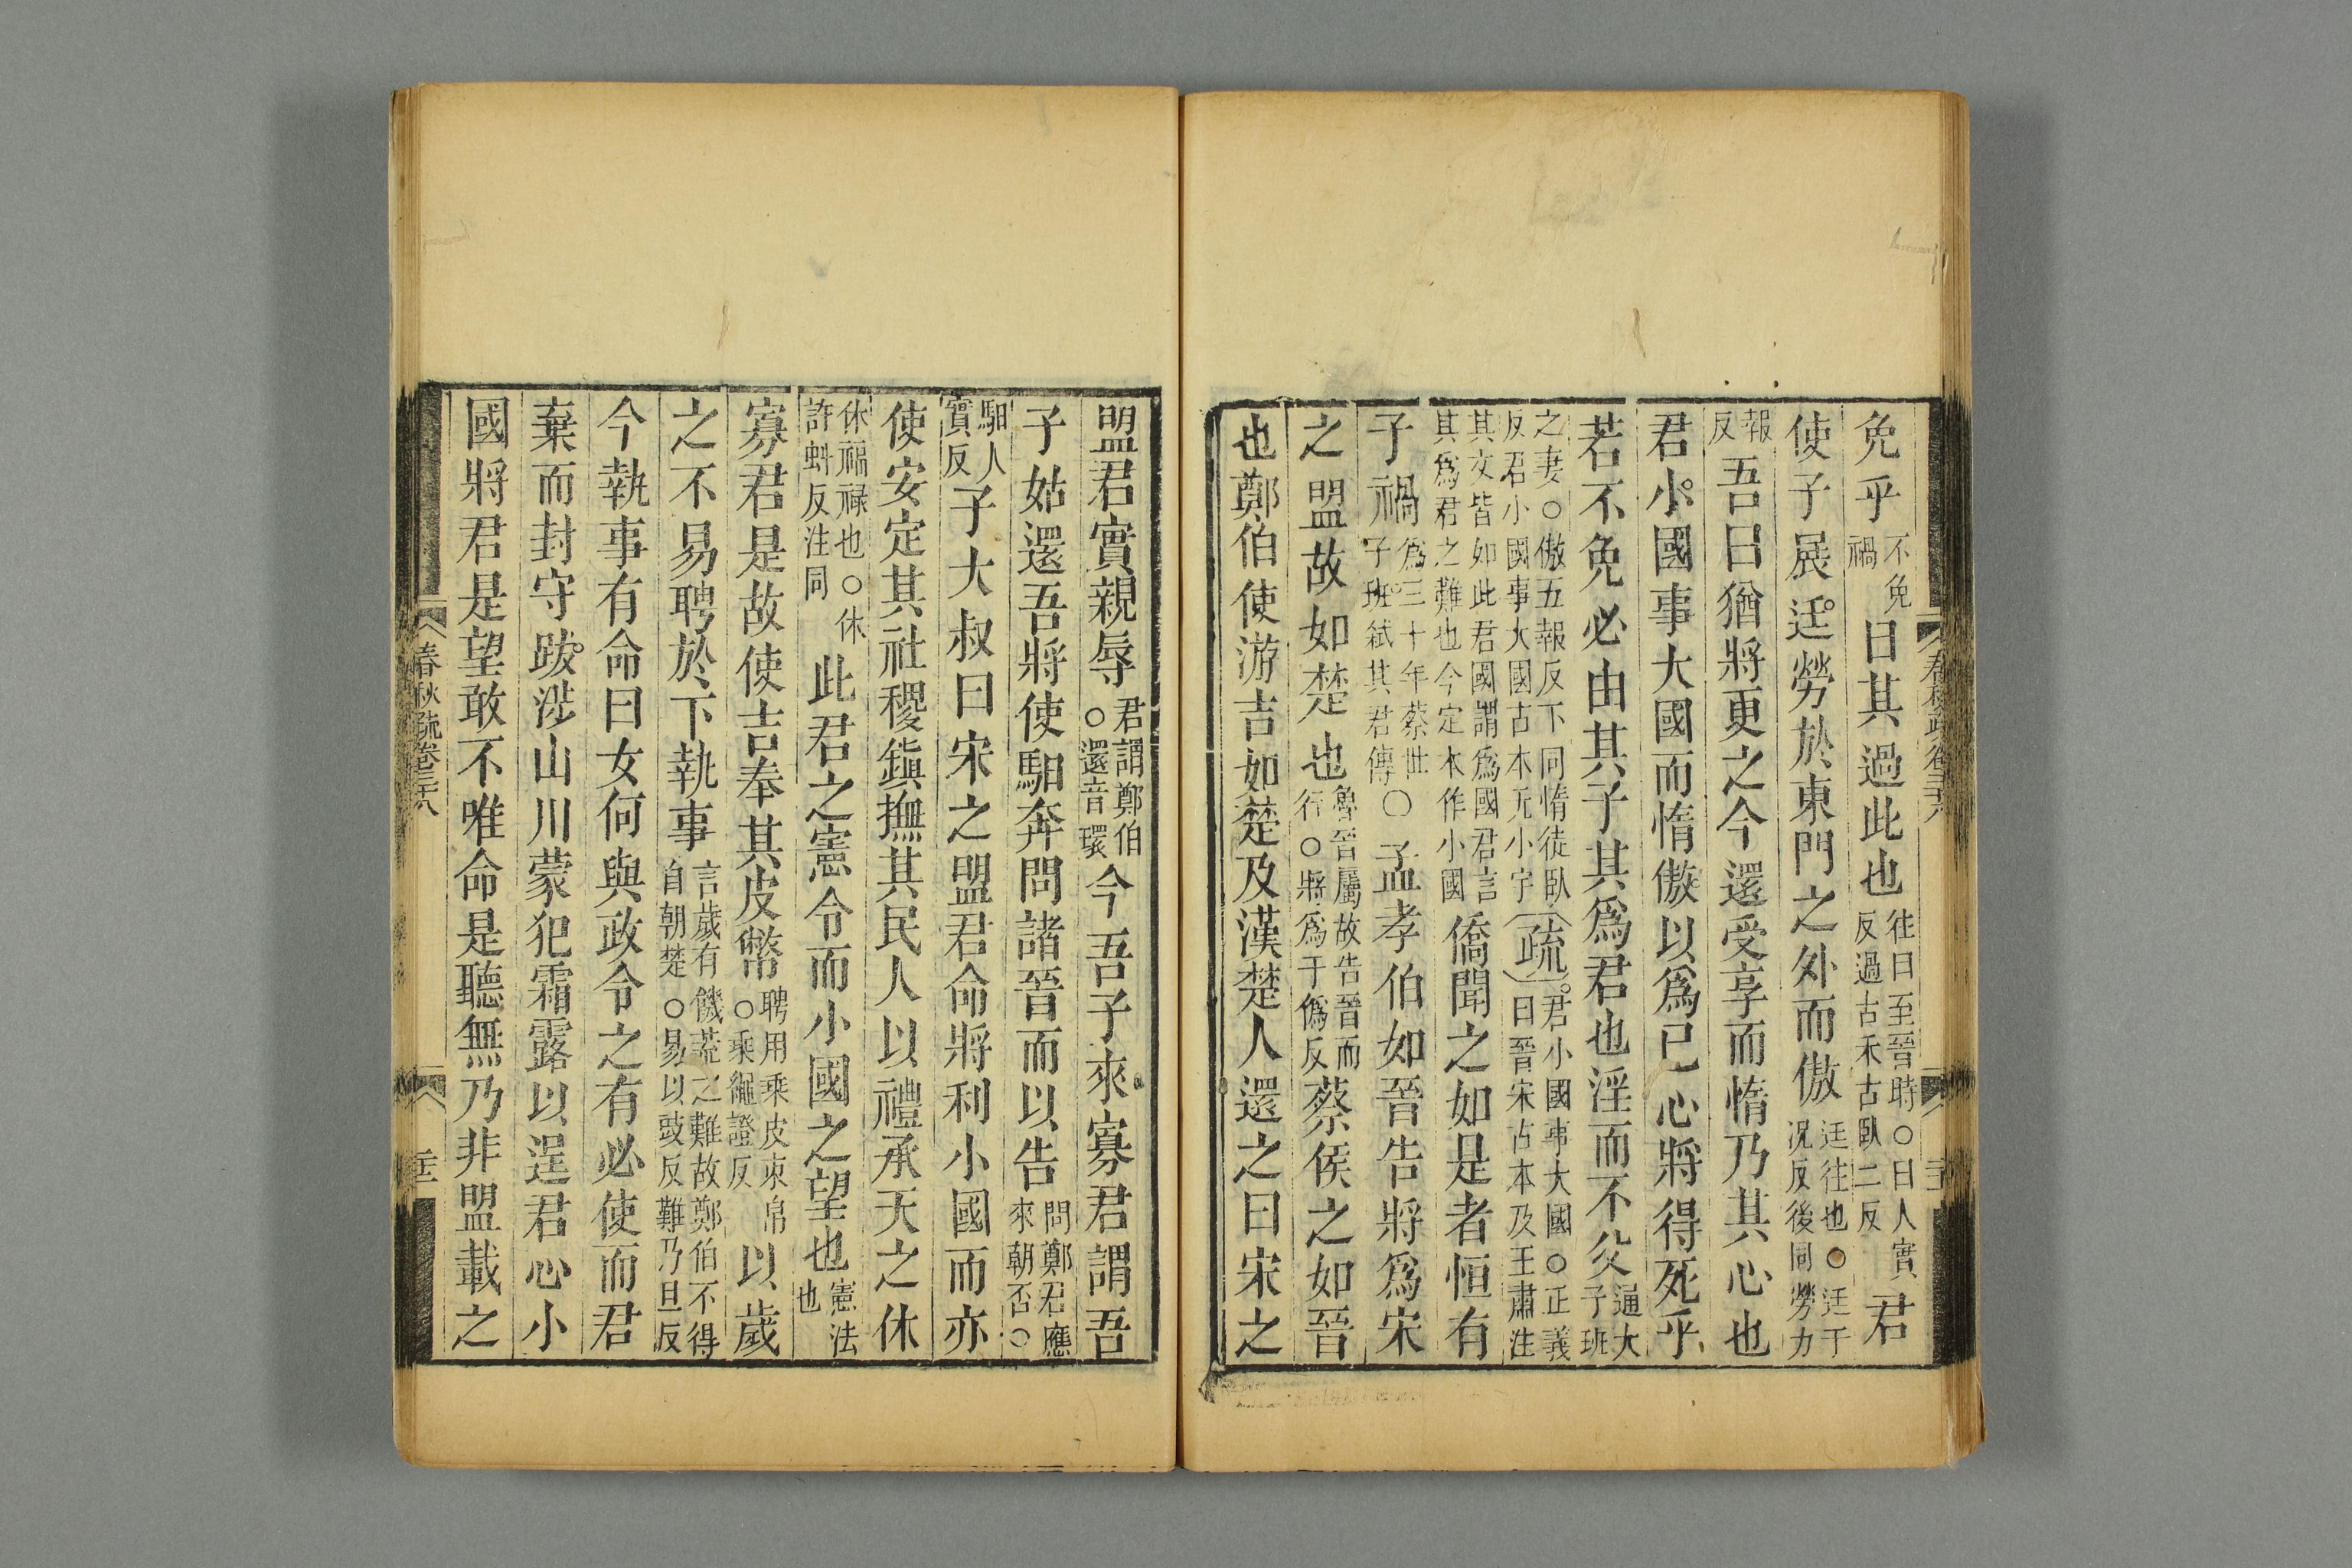 春秋疏卷三十八
免乎不免禍曰其過此也徃曰至晉時○曰人實反過古禾古臥二反君
使子展迋勞於東門之外而傲迋往也○迋于況反後同勞力
報反吾曰猶將更之今還受享而惰乃其心也
君小國事大國而惰傲以爲己心將得死乎
若不免必由其子其爲君也淫而不父通大子班
之妻○傲五報反下同惰徒臥反君小國事大國古本无小字疏君小國事大國○正義曰晉宋古本及王肅注
其文皆如此君國謂爲國君言其爲君之難也今定本作小國僑聞之如是者恒有
子禍爲三十年蔡世子班弒其君傳○孟孝伯如晉告將爲宋
之盟故如楚也魯晉屬故告晉而行○將爲于僞反蔡侯之如晉
也鄭伯使游吉如楚及漢楚人還之曰宋之
盟君實親辱君謂鄭伯○還音環今吾子來寡君謂吾
子姑還吾將使馹奔問諸晉而以告問鄭君應來朝否○
馹人實反子大叔曰宋之盟君命將利小國而亦
使安定其社稷鎮撫其民人以禮承天之休
休福祿也○休許虯反注同此君之憲令而小國之望也憲法也
寡君是故使吉奉其皮幣聘用乘皮束帛○乘繩證反以歲
之不易聘於下執事言歲有饑荒之難故鄭伯不得自朝楚○易以豉反難乃旦反
今執事有命曰女何與政令之有必使而君
棄而封守跋涉山川蒙犯霜露以逞君心小
國將君是望敢不唯命是聽無乃非盟載之
春秋疏卷三十八